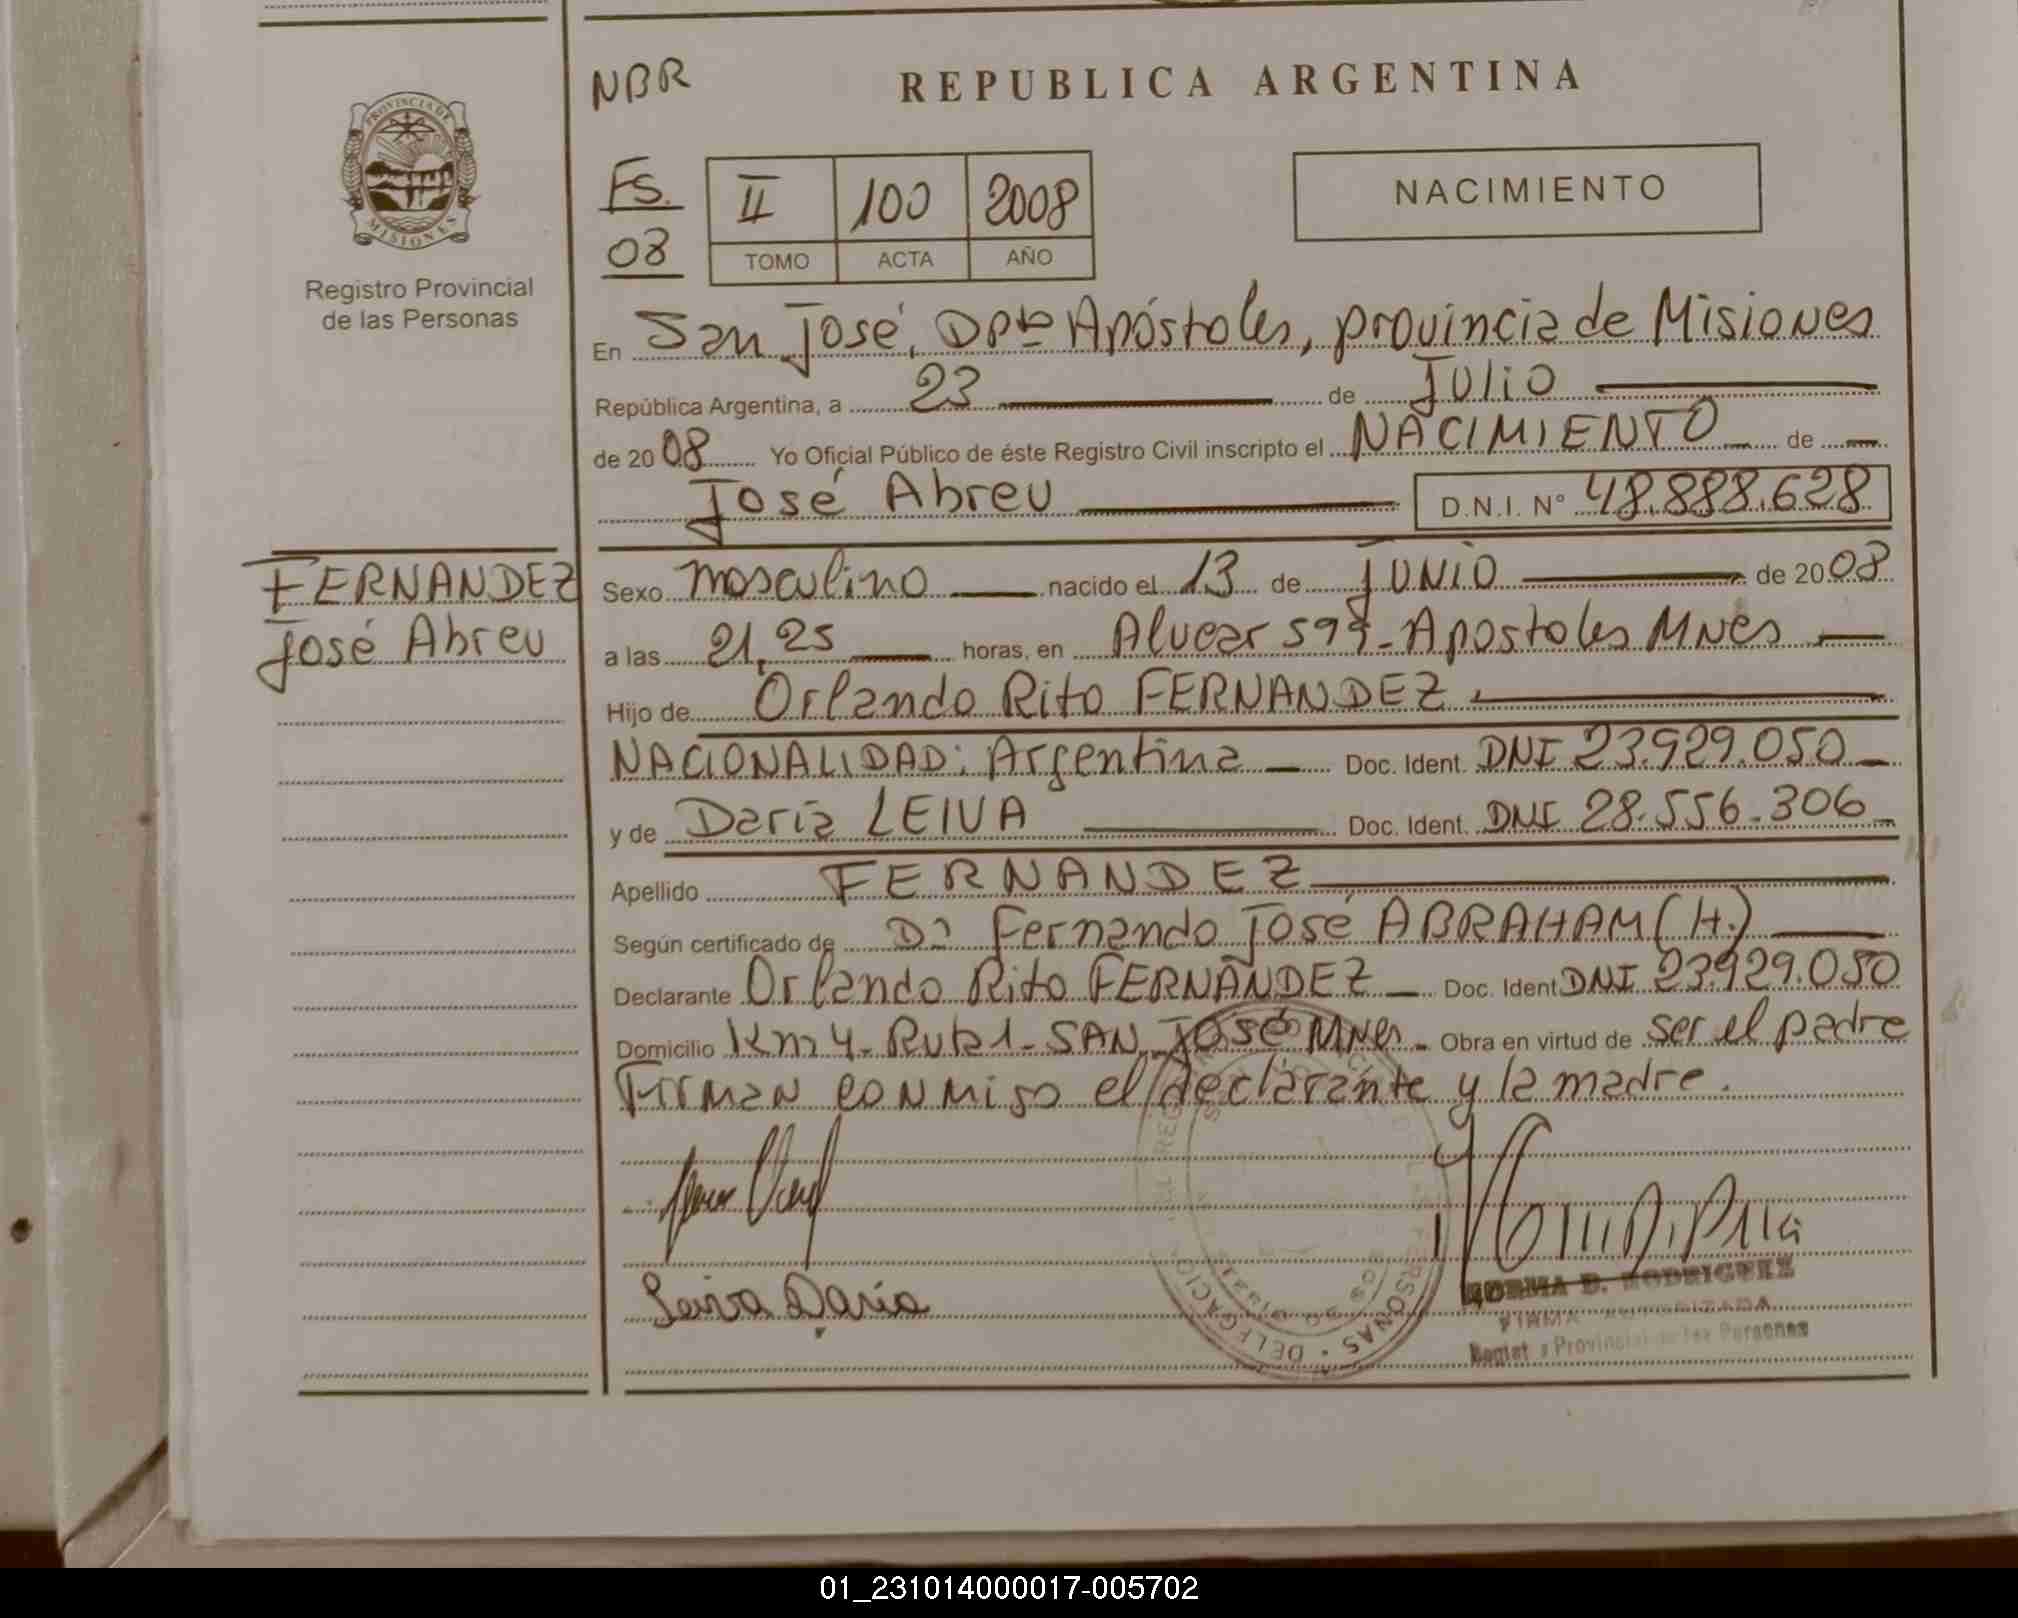 NBR
REPUBLICA ARGENTINA
PROVINCIA DE
MISIONES
Registro Provincial
de las Personas
FS.
08
II 100 2008
TOMO ACTA AÑO
NACIMIENTO
En San José, Dpto Apóstoles, provincia de Misiones
República Argentina, a 23 de Julio
de 2008 Yo Oficial Público de éste Registro Civil inscripto el NACIMIENTO de
José Abreu D.N.I. Nº 48.888.628
FERNANDEZ
José Abreu
Sexo masculino nacido el 13 de JUNIO de 2008
a las 21,25 horas, en Alvear 599 - Apostoles MNes
Hijo de Orlando Rito FERNANDEZ
NACIONALIDAD: Argentina Doc. Ident. DNI 23.929.050
y de Daria LEIVA Doc. Ident. DNI 28.556.306
Apellido FERNANDEZ
Según certificado de Dr Fernando José ABRAHAM (H.)
Declarante Orlando Rito FERNANDEZ Doc. Ident DNI 23.929.050
Domicilio Km 4 - Ruta 1 - SAN José MNes - Obra en virtud de ser el padre
Firman conmigo el declarante y la madre.
Leiva Daria
NORMA D. RODRIGUEZ
FIRMA AUTORIZADA
Registro Provincial de las Personas
01_231014000017-005702